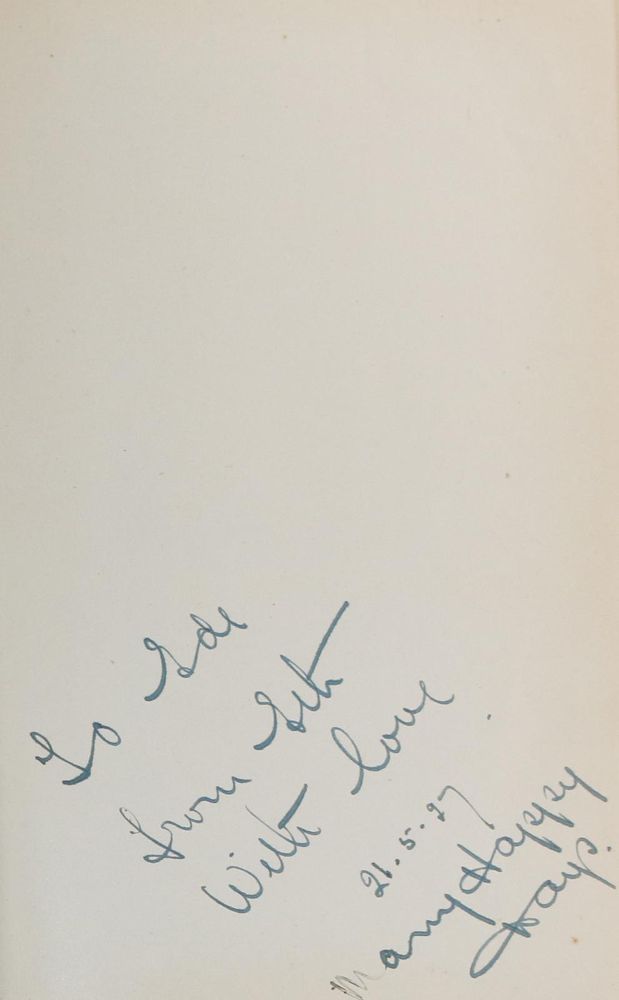 To Ede
from Eth
With love
21.5.27
Many Happy
Days.